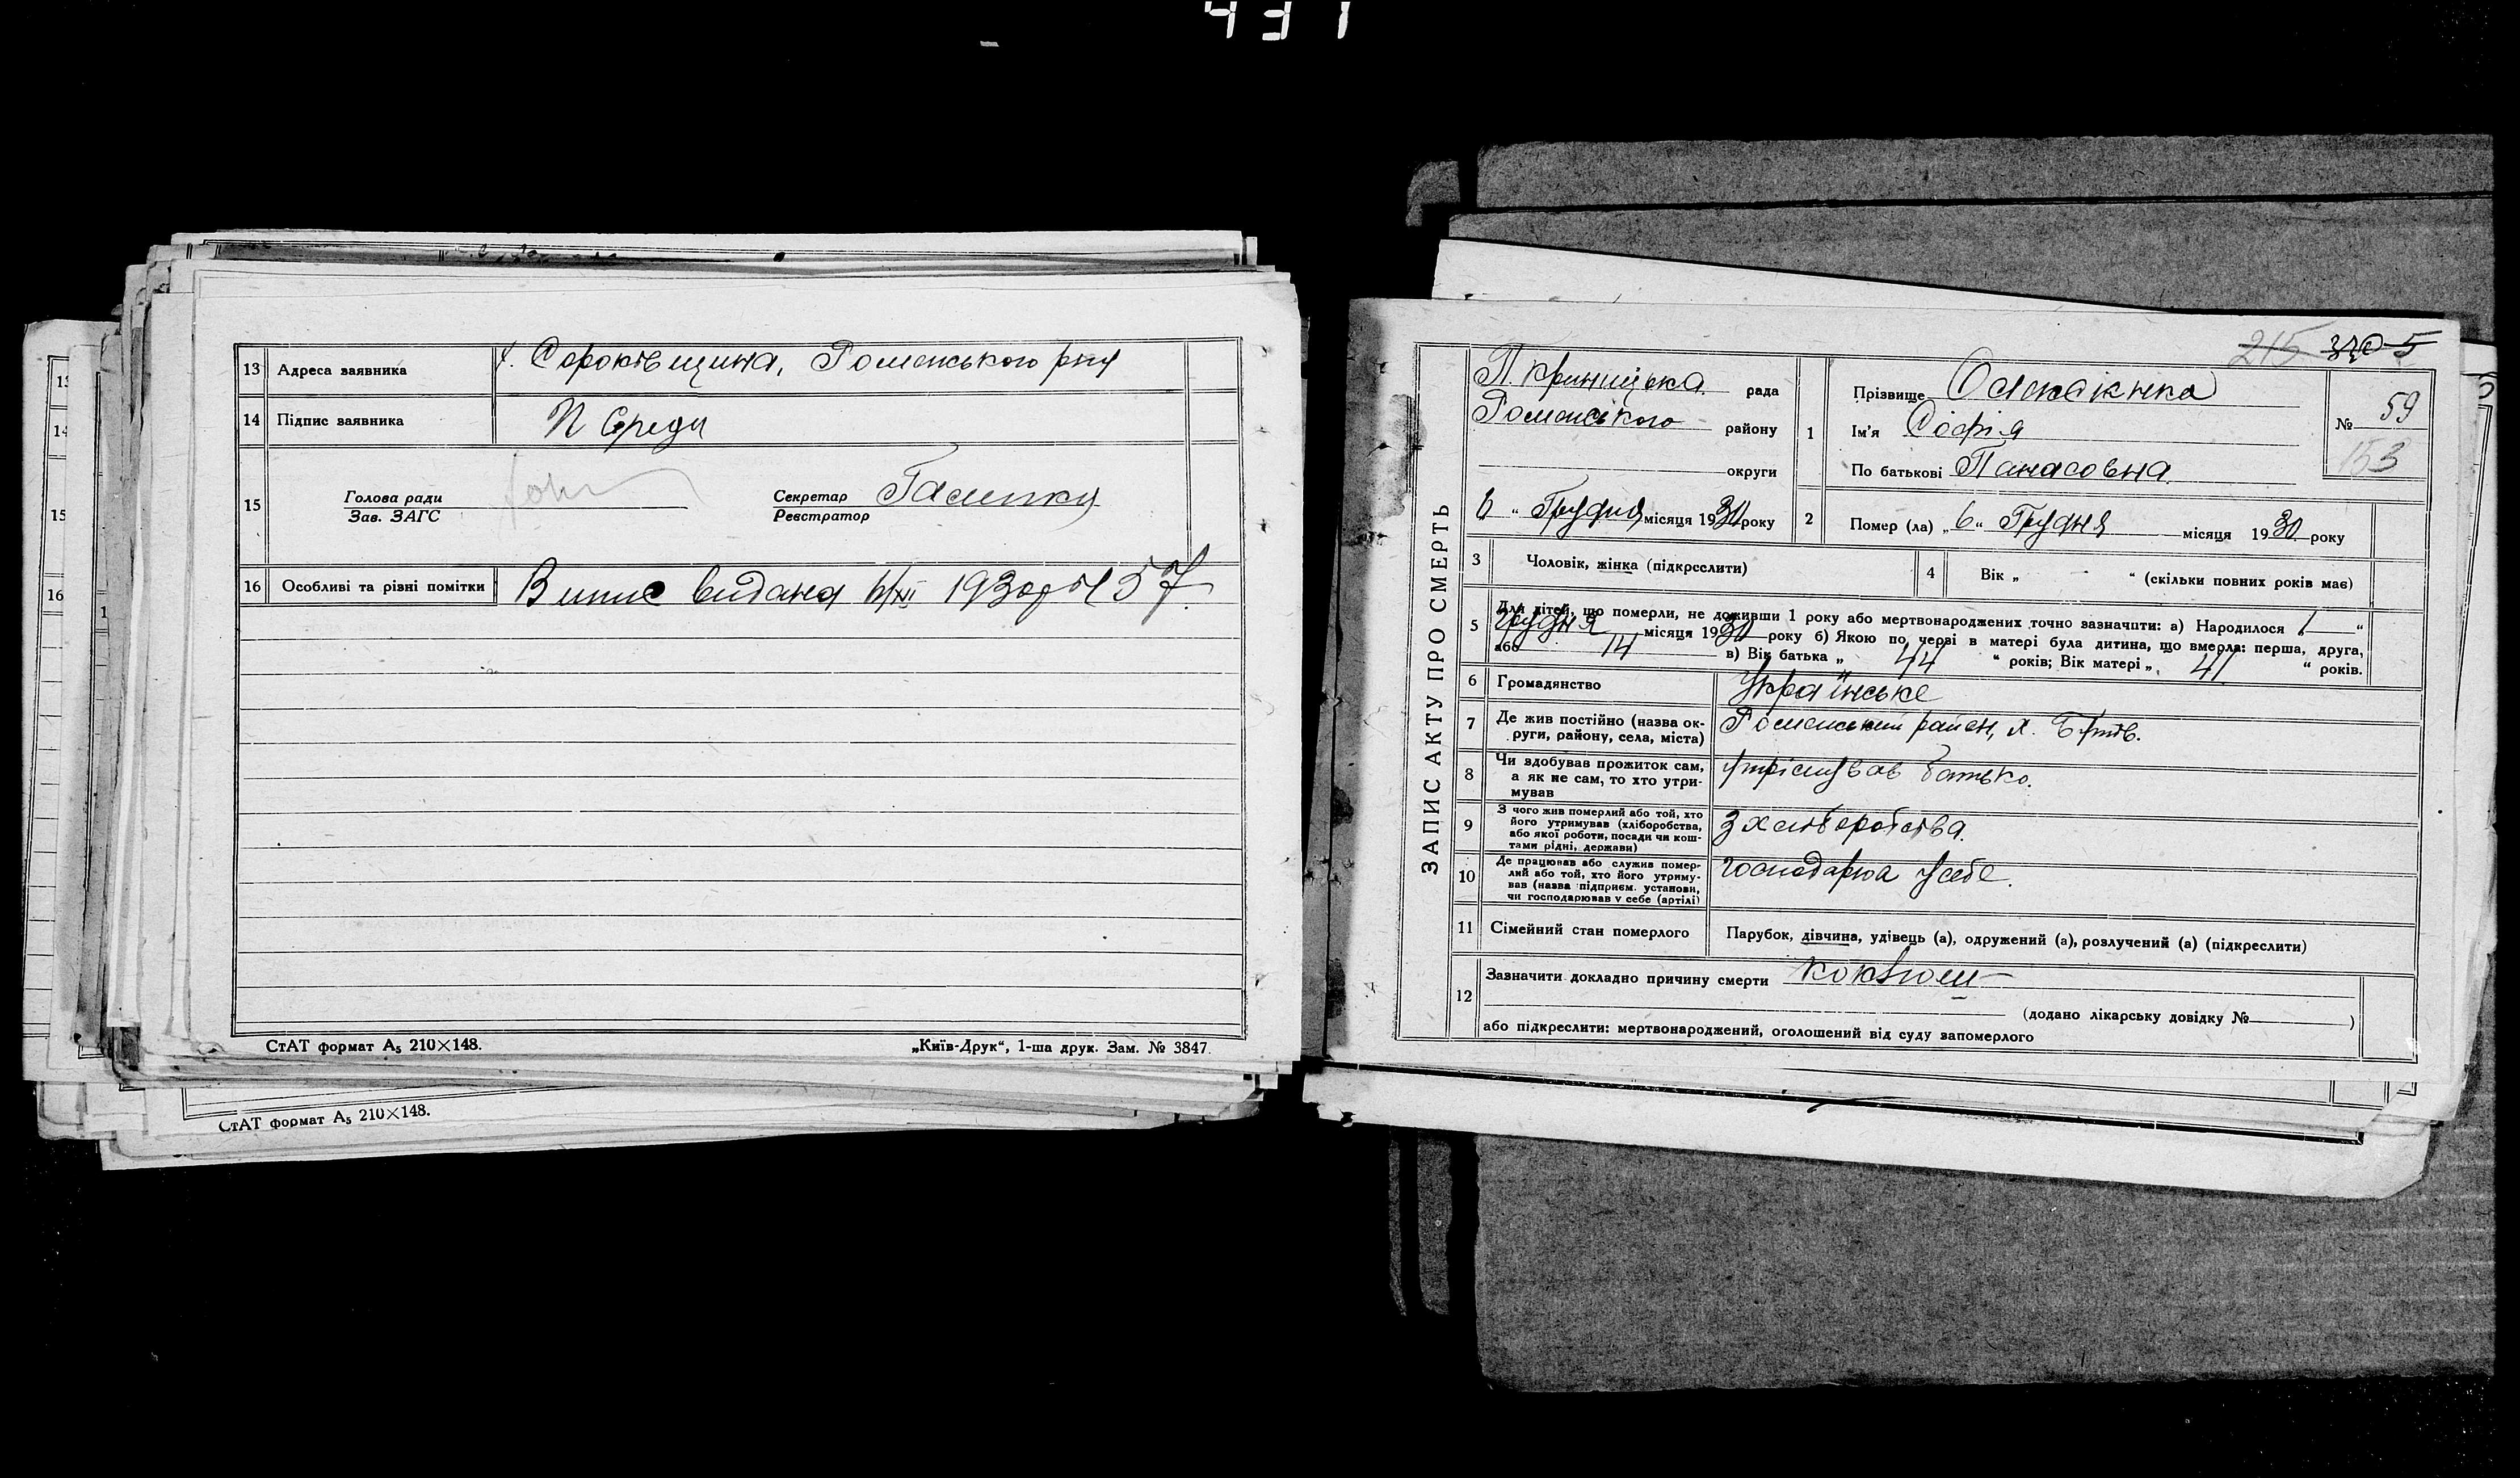 431
13 Адреса заявника Сороківщина, Роменського р-ну
14 Підпис заявника
15 Голова ради
Зав. ЗАГС
Секретар
Реєстратор
16 Особливі та різні помітки Випис видана 6/XII 1930р № 57
СтАТ формат А₅ 210×148.
„Київ-Друк“, 1-ша друк. Зам. № 3847.
СтАТ формат А₅ 210×148.
13
14
15
16
ЗАПИС АКТУ ПРО СМЕРТЬ
215 5
рада
Роменського району
округи
6 „ Грудня місяця 1930 року
1 Прізвище
Ім'я Софія
По батькові Панасовна
№ 59
153
2 Помер (ла) „6“ Грудня місяця 1930 року
3 Чоловік, жінка (підкреслити)
4 Вік „ “ (скільки повних років має)
5 Для дітей, що померли, не доживши 1 року або мертвонароджених точно зазначити: а) Народилося 1 “
Грудня місяця 1930 року б) Якою по черві в матері була дитина, що вмерла: перша, друга,
або 14 в) Вік батька „ 44 “ років; Вік матері „ 41 “ років.
6 Громадянство Українське
7 Де жив постійно (назва ок-
руги, району, села, міста) Роменський район, х.
8 Чи здобував прожиток сам,
а як не сам, то хто утри-
мував утрімував батько.
9 З чого жив померлий або той, хто
його утримував (хліборобства,
або якої роботи, посади чи кош-
тами рідні, держави) З хліборобства
10 Де працював або служив помер-
лий або той, хто його утриму-
вав (назва підприєм. установи,
чи господарював у себе (артілі) господарюа у себе.
11 Сімейний стан померлого Парубок, дівчина, удівець (а), одружений (а), розлучений (а) (підкреслити)
12 Зазначити докладно причину смерти коклюш
(додано лікарську довідку № )
або підкреслити: мертвонароджений, оголошений від суду запомерлого